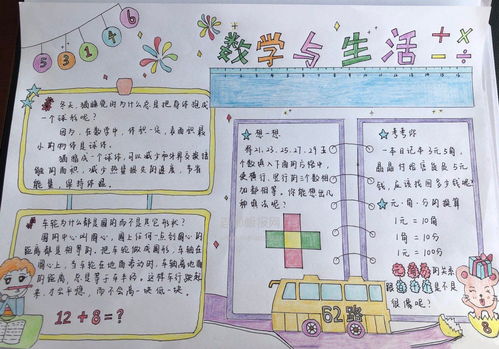 5 3 1 4 6
数学与生活
+ × − ÷
冬天,猫睡觉时为什么总是把身体抱成
一个球形呢?
因为,在数学中,体积一定,表面积最
小的物体是球体。
猫缩成一个球体,可以减少和外界交接触
的面积,减少热量散失的速度,节省
能量,保持体温。
车轮为什么都是圆的而不是其它形状?
圆的中心叫圆心,圆上任何一点到圆心的
距离都是相等的。把车轮做成圆形,车轴在
圆心上,当车轮在地面滚动时,车轴离地面
的距离,总是等于车半径。这样车行驶起
来,才会平稳,而不会高一块低一块。
12+8=?
想一想
将21、23、25、27、29五
个数填入下图的方格中,
使横行、竖行的三个数相
加都相等。你能想出几
种填法呢?
考考你
一本日记本3元5角,
晶晶付给店长员5元
钱,应该找回多少钱呢?
元、角、分的换算
1元=10角
1角=10分
1元=100分
元角分的关系
是不是
很像呢?
62路
8